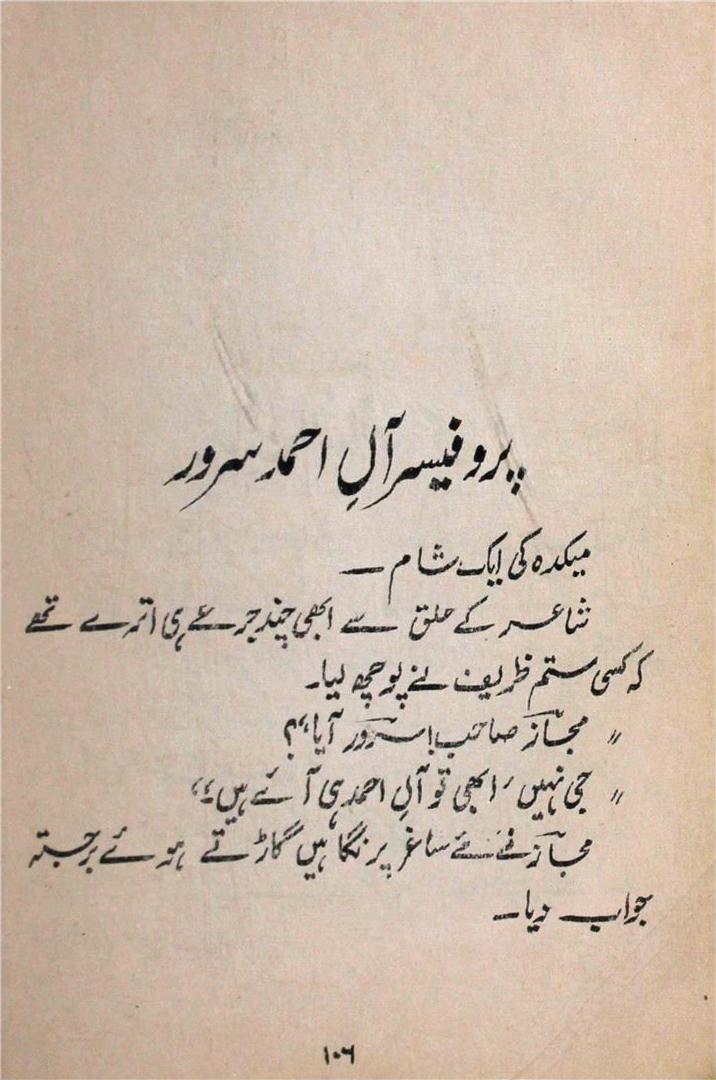 پروفیسر آلِ احمد سرور
میکدہ کی ایک شام ــ
شاعر کے حلق سے ابھی چند جرعے ہی اترے تھے
کہ کسی ستم ظریف نے پوچھ لیا۔
" مجاؔز صاحب! سرؔور آیا"؟
" جی نہیں، ابھی تو آلِ احمد ہی آئے ہیں۔"
مجاؔز نے ساغر پر نگاہیں گاڑتے ہوئے برجستہ
جواب دیا ــ
۱۰۶